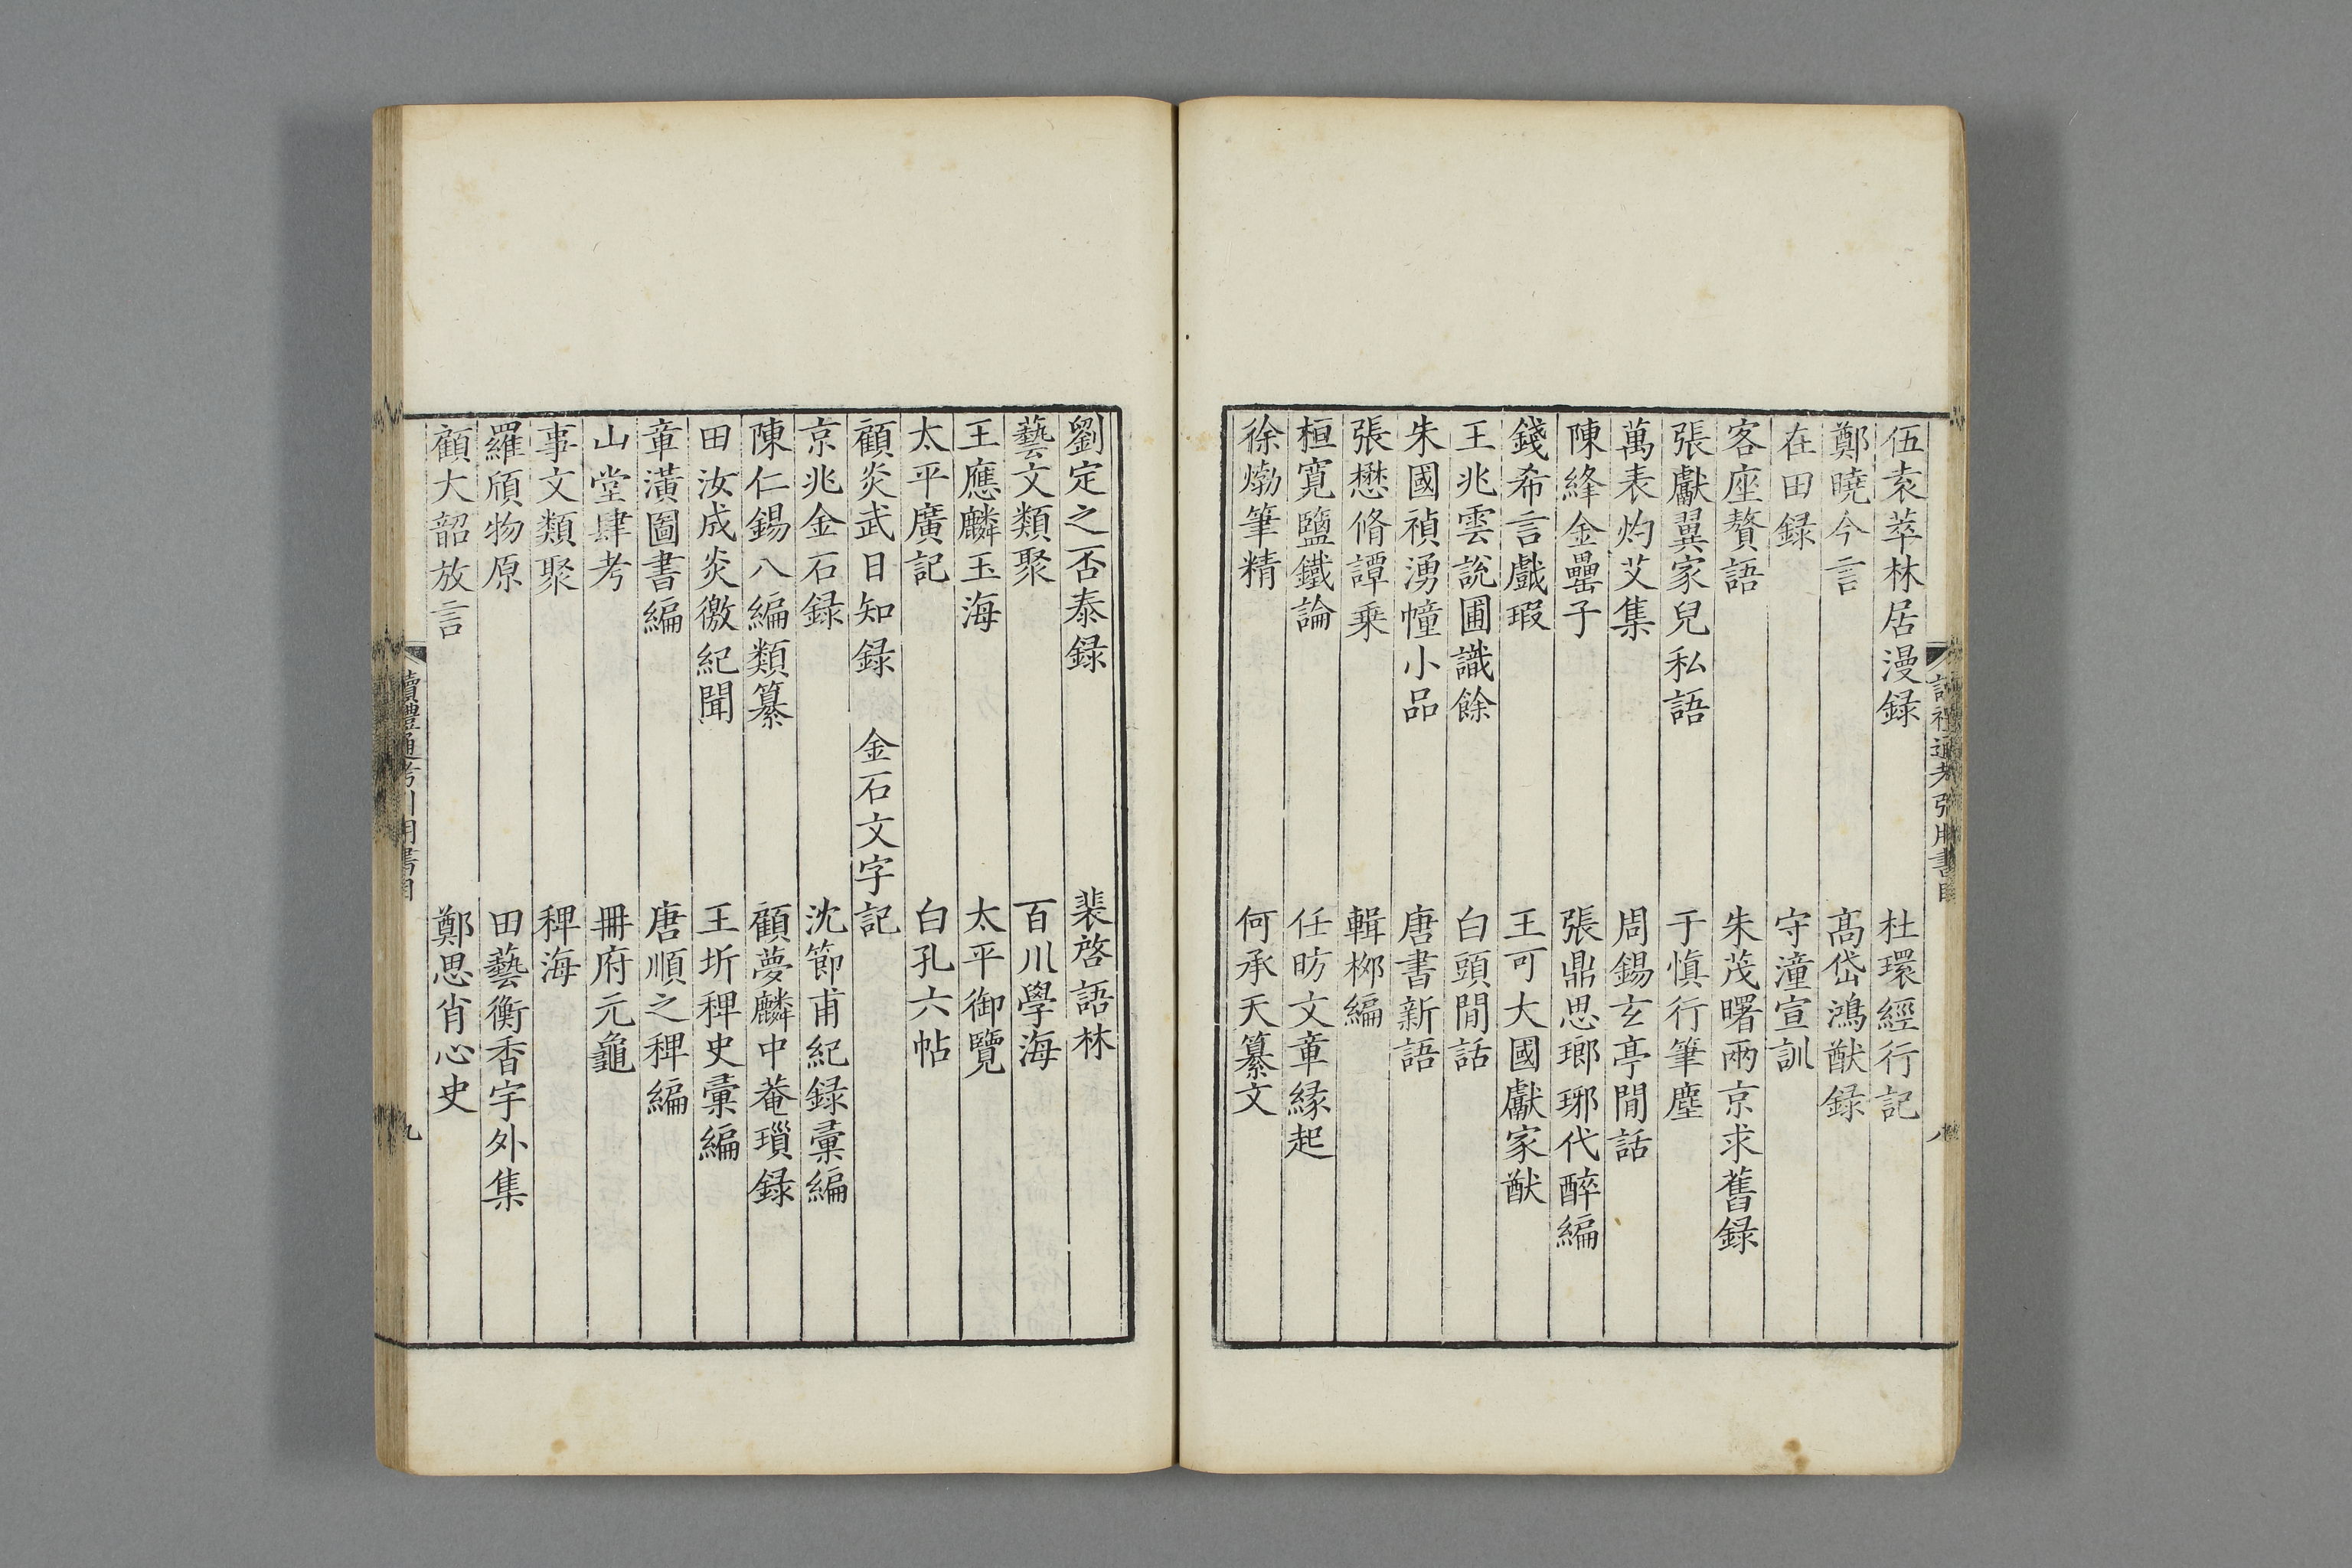 伍袁萃林居漫録 杜環經行記
鄭曉今言 髙岱鴻猷録
在田録 守潼宣訓
客座贅語 朱茂曙兩京求舊録
張獻翼家兒私語 于慎行筆塵
萬表灼艾集 周錫玄亭閒話
陳絳金罍子 張鼎思瑯琊代醉編
錢希言戲瑕 王可大國獻家猷
王兆雲說圃識餘 白頭閒話
朱國禎湧幢小品 唐書新語
張懋脩譚乗 輯栁編
桓寛鹽鐵論 任昉文章緣起
徐𤊹筆精 何承天纂文
劉定之否泰録 裴啓語林
藝文類聚 百川學海
王應麟玉海 太平御覽
太平廣記 白孔六帖
顧炎武日知録 金石文字記
京兆金石録 沈節甫紀録彙編
陳仁錫八編類纂 顧夢麟中菴瑣録
田汝成炎徼紀聞 王圻稗史彙編
章潢圖書編 唐順之稗編
山堂肆考 冊府元龜
事文類聚 稗海
羅頎物原 田藝衡香宇外集
顧大韶放言 鄭思肖心史
讀禮通考引用書目 九